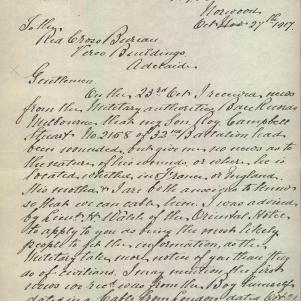 Norwood
Oct 27th 1917.
To The
Red Cross Bureau
Verco Buildings
Adelaide
Gentlemen
On the 23rd Oct. I received news
from the Military authorities Base Records
Melbourne that my Son Roy Campbell
Stuart No 2165 of 32nd Battalion had
been wounded, but give no news as to
the nature of his wounds, or where he is
located whether in France or England.
His mother & I are both anxious to know
so that we can cable him. I was advised
by Lieut H Walsh of the Oriental Hotel
to apply to you as being the most likely
people to get the information, as the
Military take more notice of you than they
do of civilians. I may mention the first
news we recd was from the Boy himself
dated in a Cable from London dated Oct